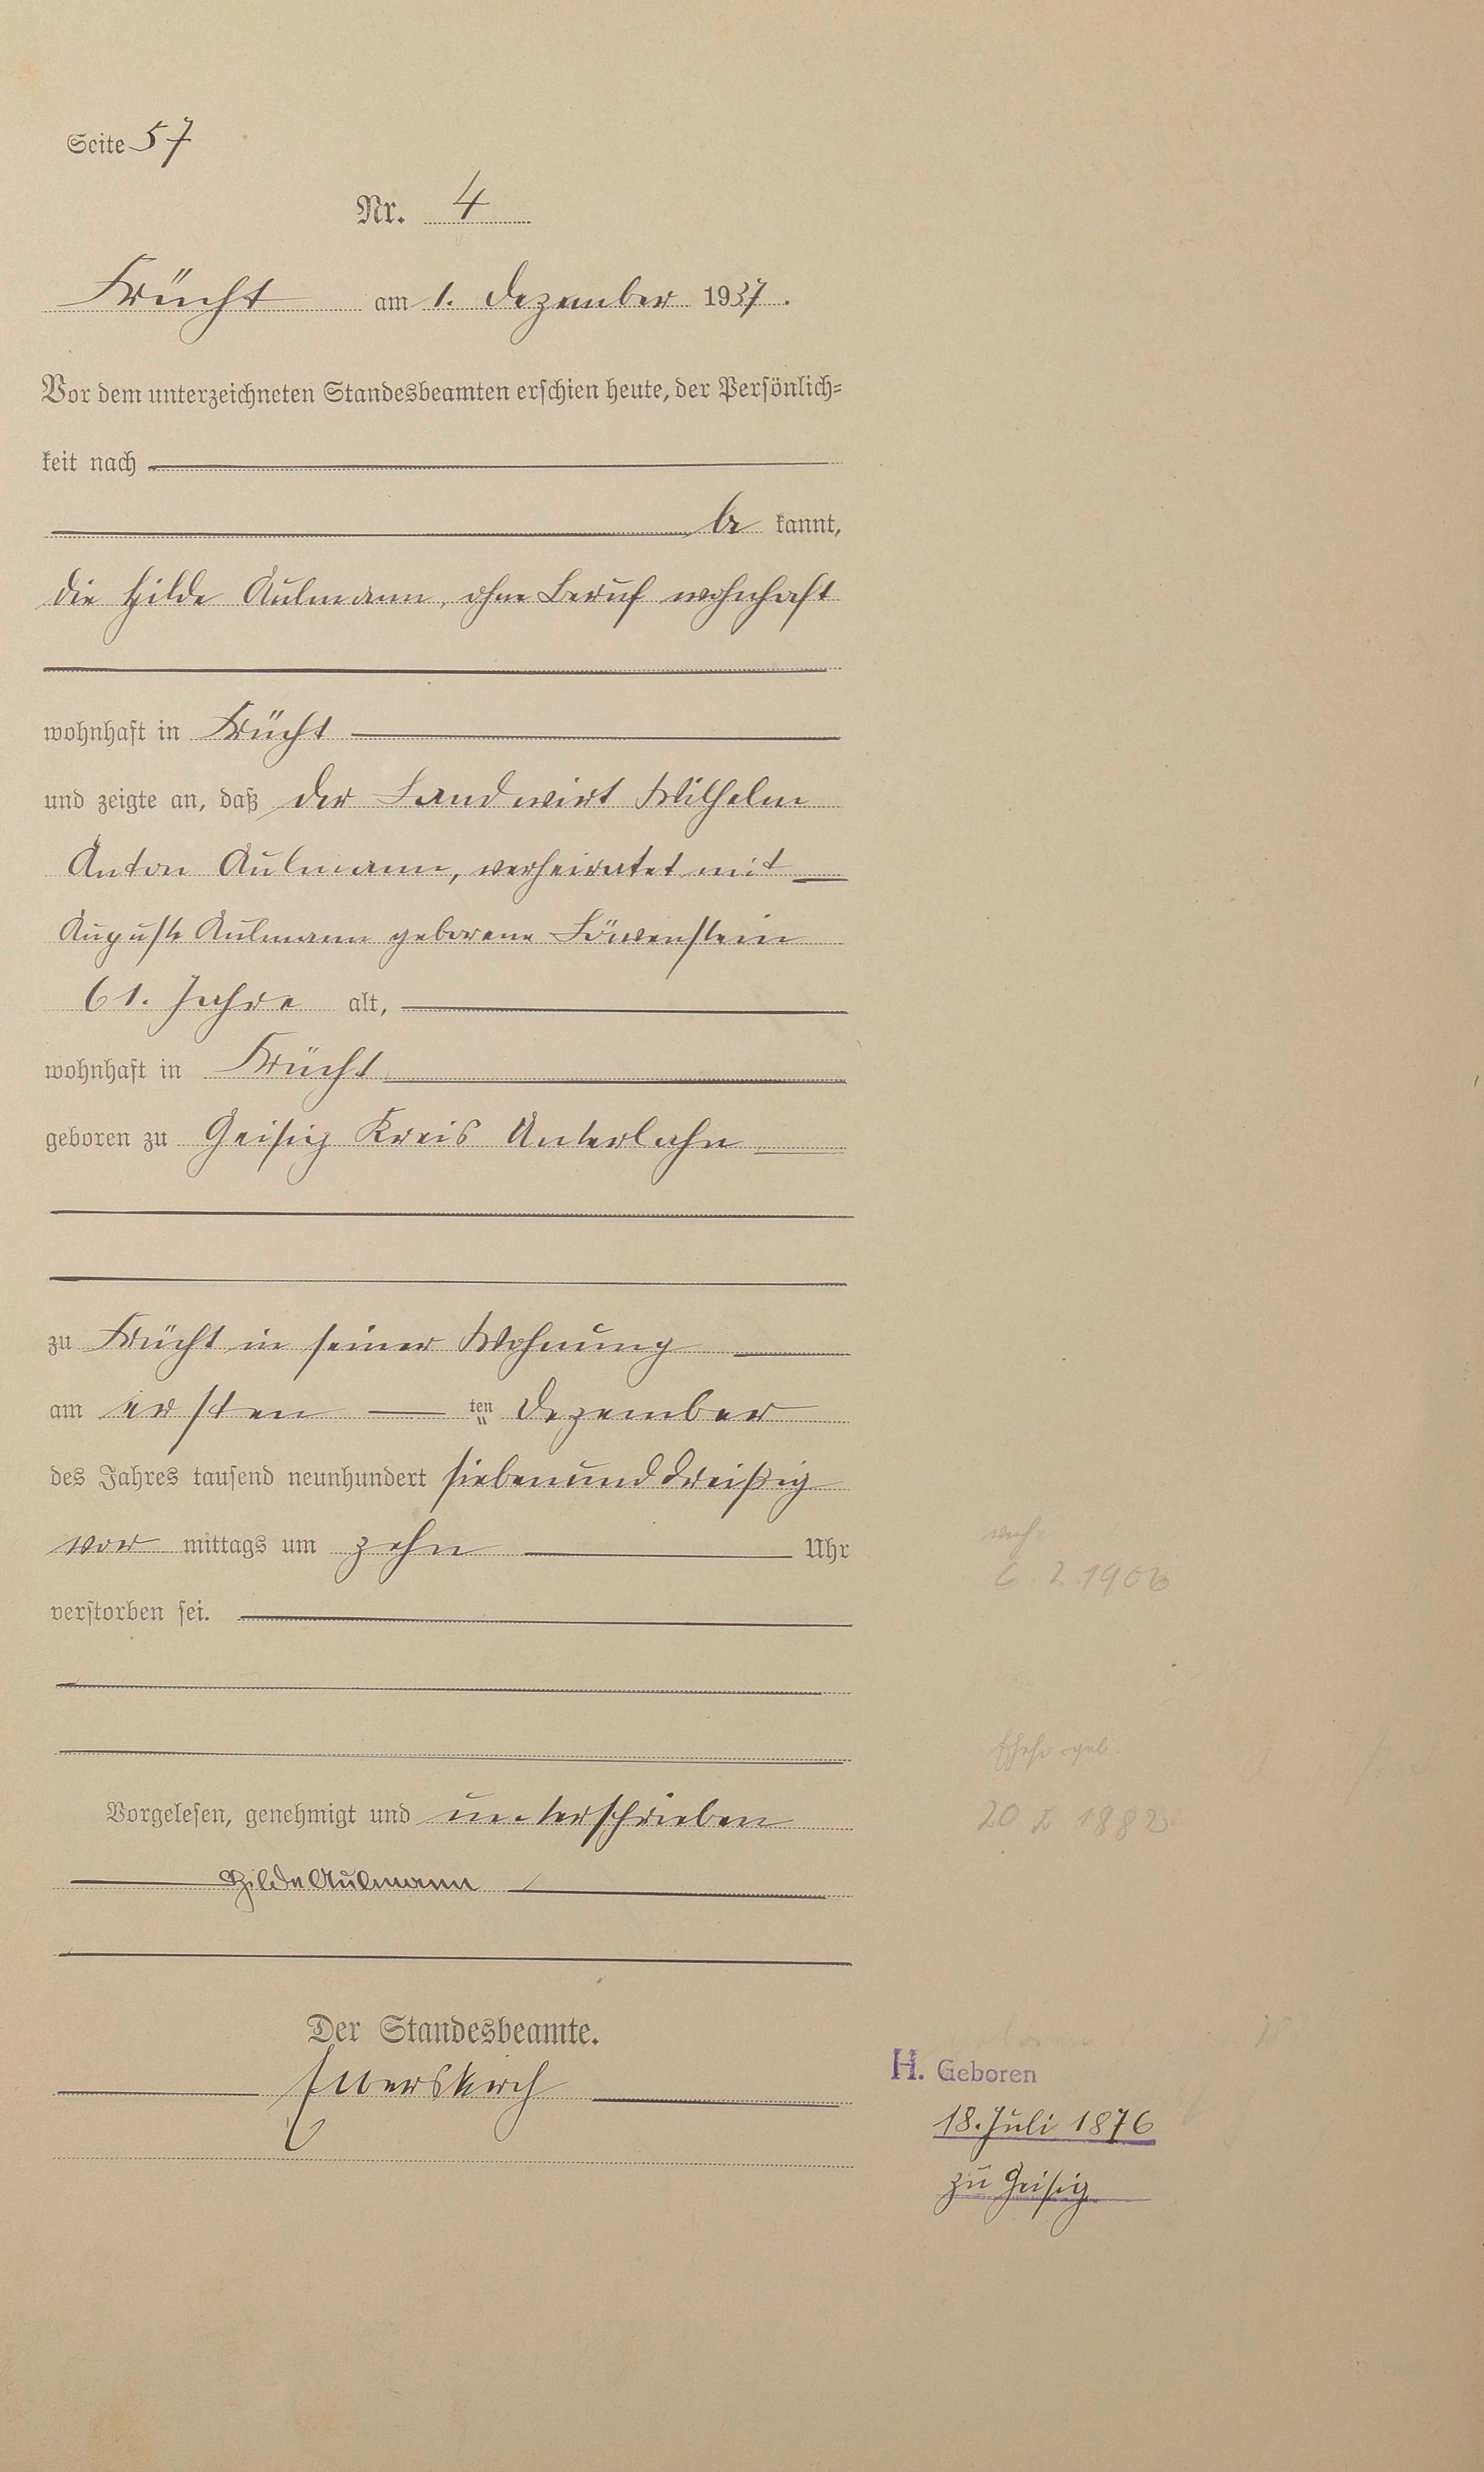 Seite 57
Nr. 4
Frücht am 1. Dezember 1937.
Vor dem unterzeichneten Standesbeamten erschien heute, der Persönlich-
keit nach
be kannt,
die Hilde Aulmann, ohne Beruf wohnhaft
wohnhaft in Frücht
und zeigte an, daß der Landwirt Wilhelm
Anton Aulmann, verheiratet mit
Auguste Aulmann geborene Löwenstein
61. Jahre alt,
wohnhaft in Frücht
geboren zu Geisig Kreis Unterlahn
zu Frücht in seiner Wohnung
am ersten ten Dezember
des Jahres tausend neunhundert siebenunddreißig
vor mittags um zehn Uhr
verstorben sei.
6.2.1906
geb.
20 X 1882
Vorgelesen, genehmigt und unterschrieben
Hilde Aulmann
Der Standesbeamte.
H. Geboren
18. Juli 1876
zu Geisig